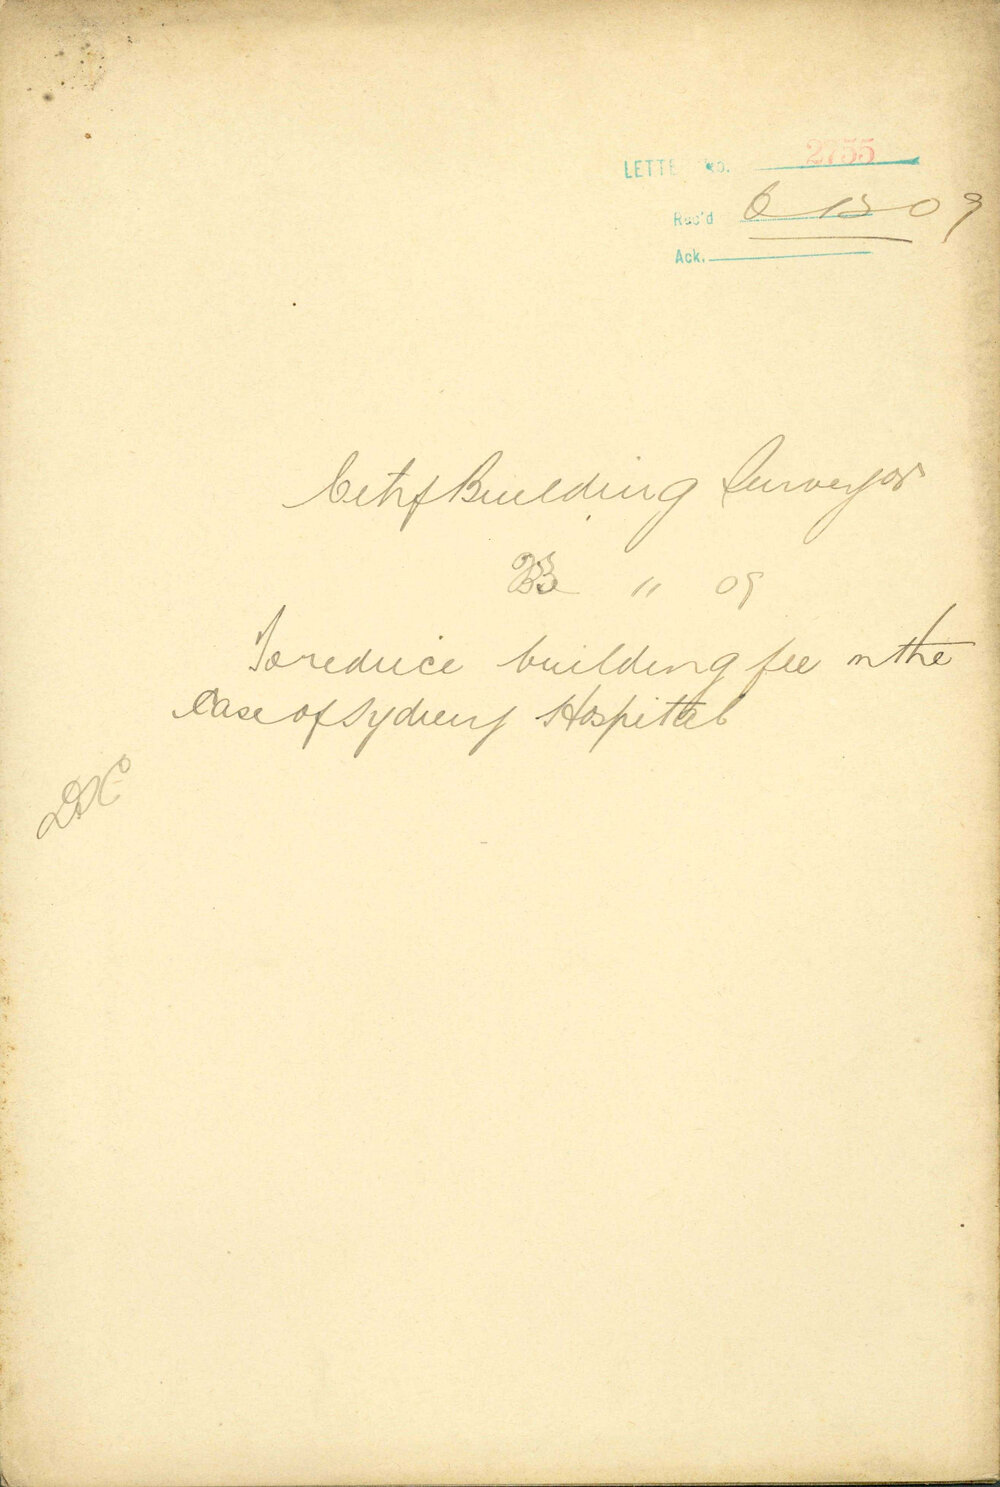 LETTER No. 2755
Rec'd 6 12 09
Ack.
City Building Surveyor
" 09
To reduce building fee in the
Case of Sydney Hospital